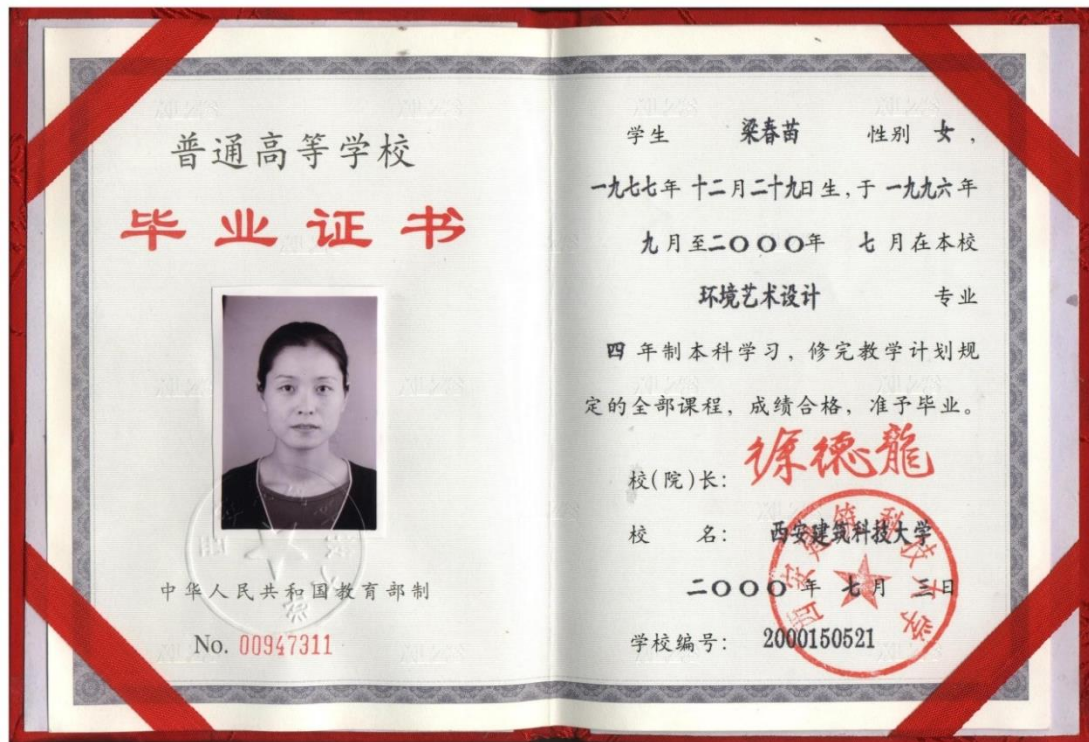 普通高等学校
毕业证书
中华人民共和国教育部制
No. 00947311
学生 梁春苗 性别 女，
一九七七年 十二月二十九日生，于 一九九六年
九月至二〇〇〇年 七月在本校
环境艺术设计 专业
四 年制本科学习，修完教学计划规
定的全部课程，成绩合格，准予毕业。
校(院)长： 徐德龍
校 名： 西安建筑科技大学
二〇〇〇 年 七 月 三日
学校编号： 2000150521
西安建筑科技大学